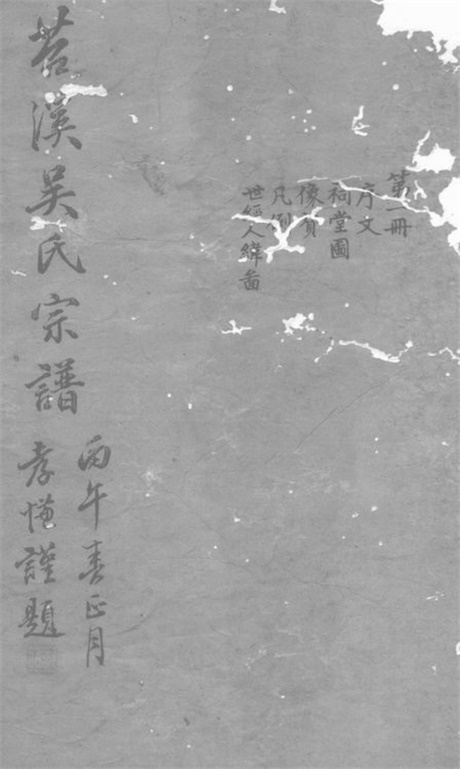 第一冊
序文
祠堂圖
像贊
凡例
世經人緯啚
丙午春正月
苕溪吴氏宗譜
孝慥謹題